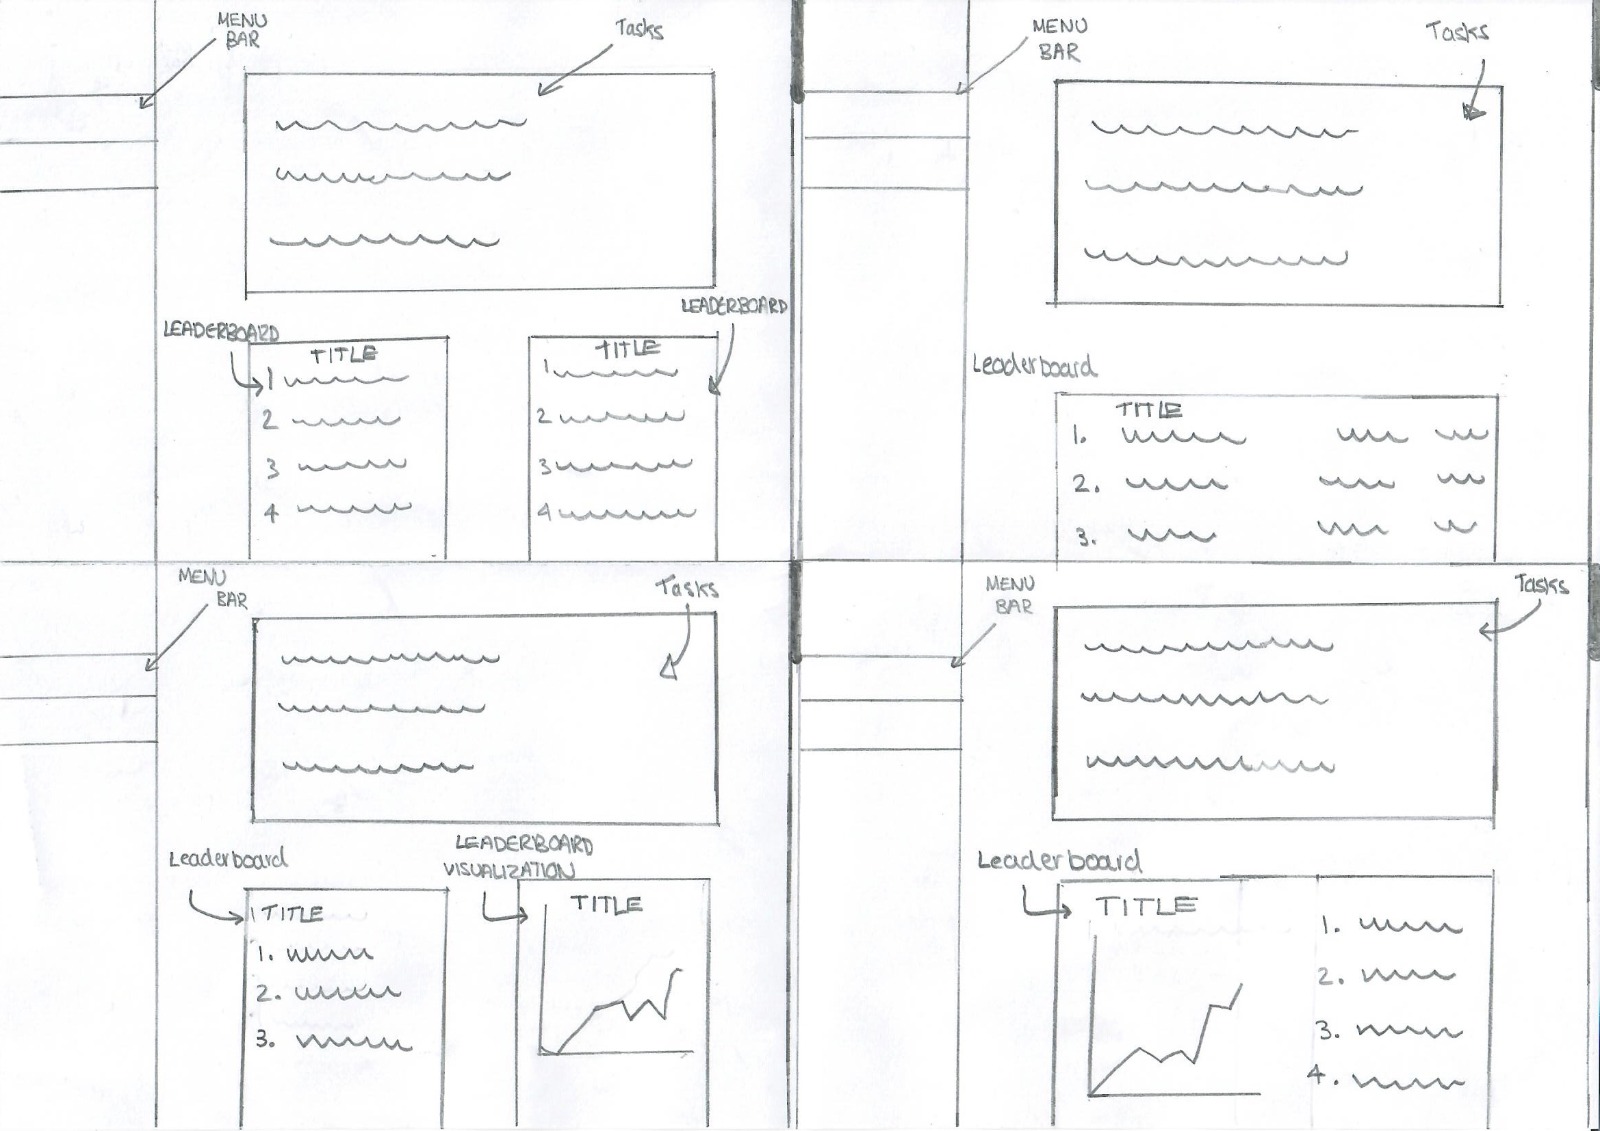 MENU
BAR
Tasks
LEADERBOARD
TITLE
1
2
3
4
LEADERBOARD
TITLE
1
2
3
4
MENU
BAR
Tasks
Leaderboard
TITLE
1.
2.
3.
MENU
BAR
Tasks
Leaderboard
TITLE
1.
2.
3.
LEADERBOARD
VISUALIZATION
TITLE
MENU
BAR
Tasks
Leaderboard
TITLE
1.
2.
3.
4.